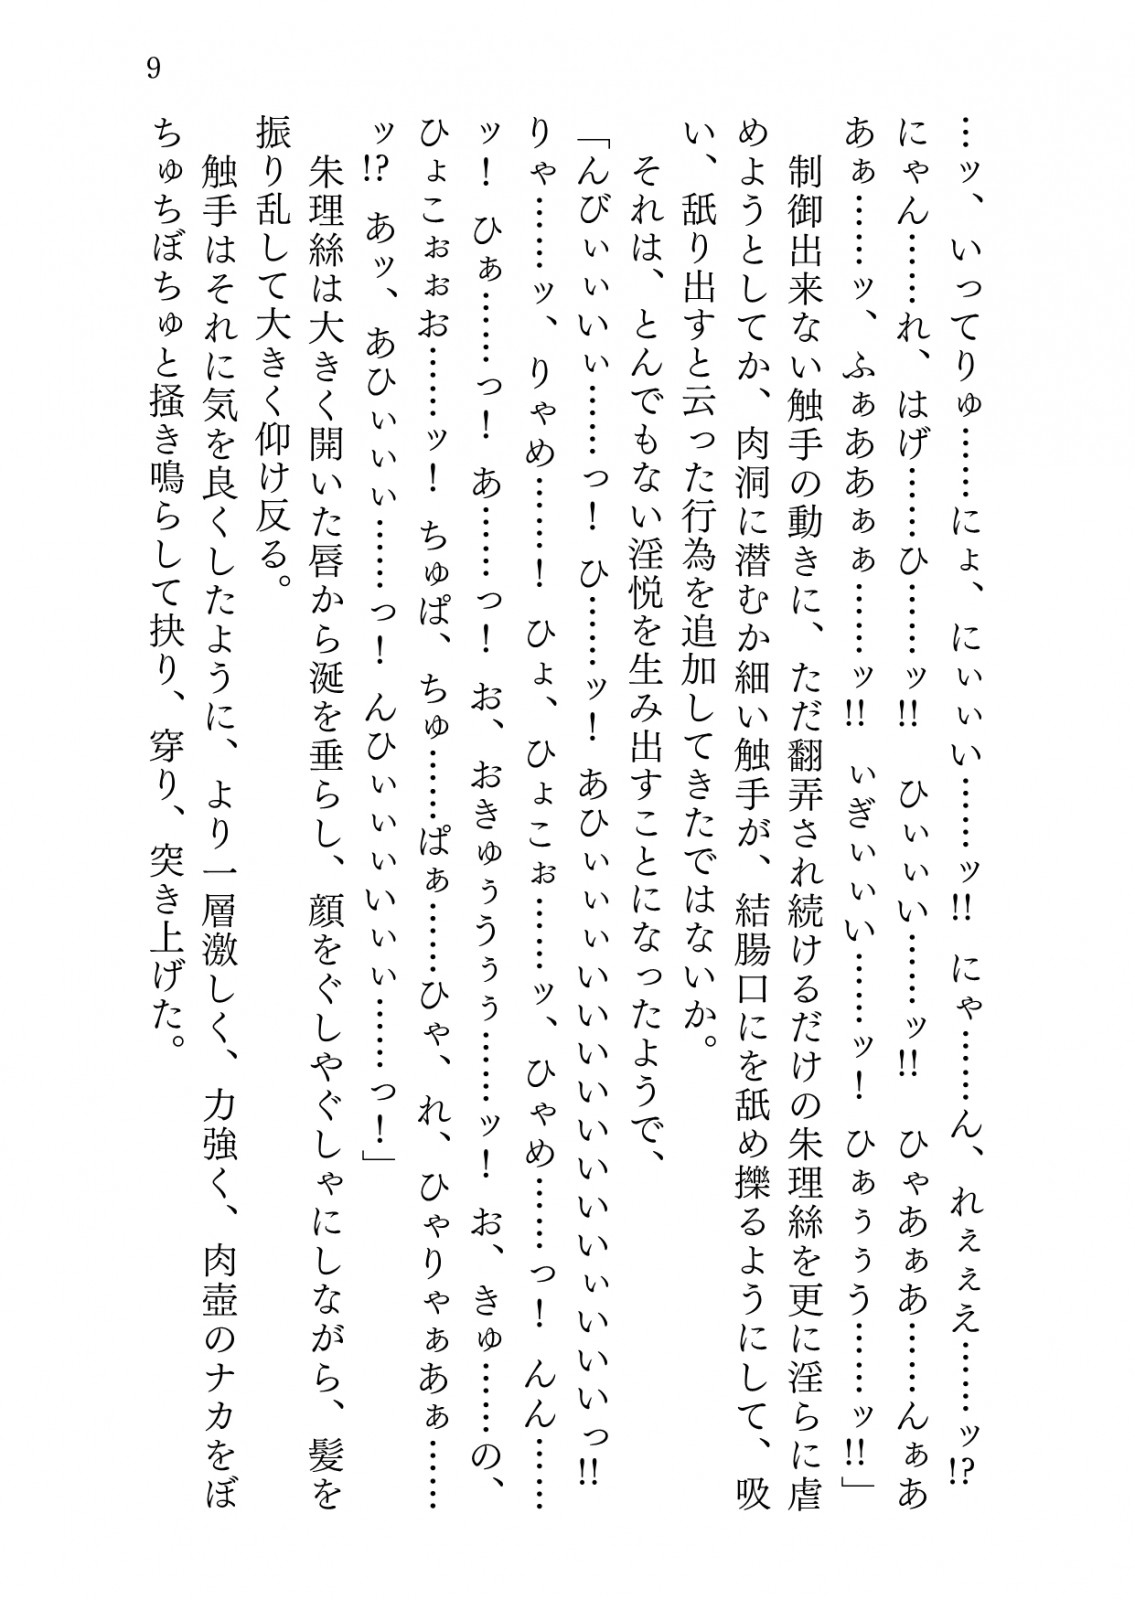 9
…ッ、いってりゅ……にょ、にぃぃい……ッ!! にゃ……ん、れぇぇえ……ッ!?
にゃん……れ、はげ……ひ……ッ!! ひぃぃい……ッ!! ひゃあぁあ……んぁあ
あぁ……ッ、ふぁああぁぁ……ッ!! ぃぎぃぃい……ッ! ひぁぅぅう……ッ!!」
制御出来ない触手の動きに、ただ翻弄され続けるだけの朱理絲を更に淫らに虐
めようとしてか、肉洞に潜むか細い触手が、結腸口にを舐め擽るようにして、吸
い、舐り出すと云った行為を追加してきたではないか。
それは、とんでもない淫悦を生み出すことになったようで、
「んびぃぃいぃ……っ! ひ……ッ! あひぃぃぃいいいいいいいぃいいいっ!!
りゃ……ッ、りゃめ……! ひょ、ひょこぉ……ッ、ひゃめ……っ! んん……
ッ! ひぁ……っ! あ……っ! お、おきゅぅうぅぅ……ッ! お、きゅ……の、
ひょこぉぉお……ッ! ちゅぱ、ちゅ……ぱぁ……ひゃ、れ、ひゃりゃぁあぁ……
ッ!? あッ、あひぃいぃ……っ! んひぃぃぃいいぃ……っ!」
朱理絲は大きく開いた唇から涎を垂らし、顔をぐしやぐしゃにしながら、髪を
振り乱して大きく仰け反る。
触手はそれに気を良くしたように、より一層激しく、力強く、肉壺のナカをぼ
ちゅちぼちゅと掻き鳴らして抉り、穿り、突き上げた。